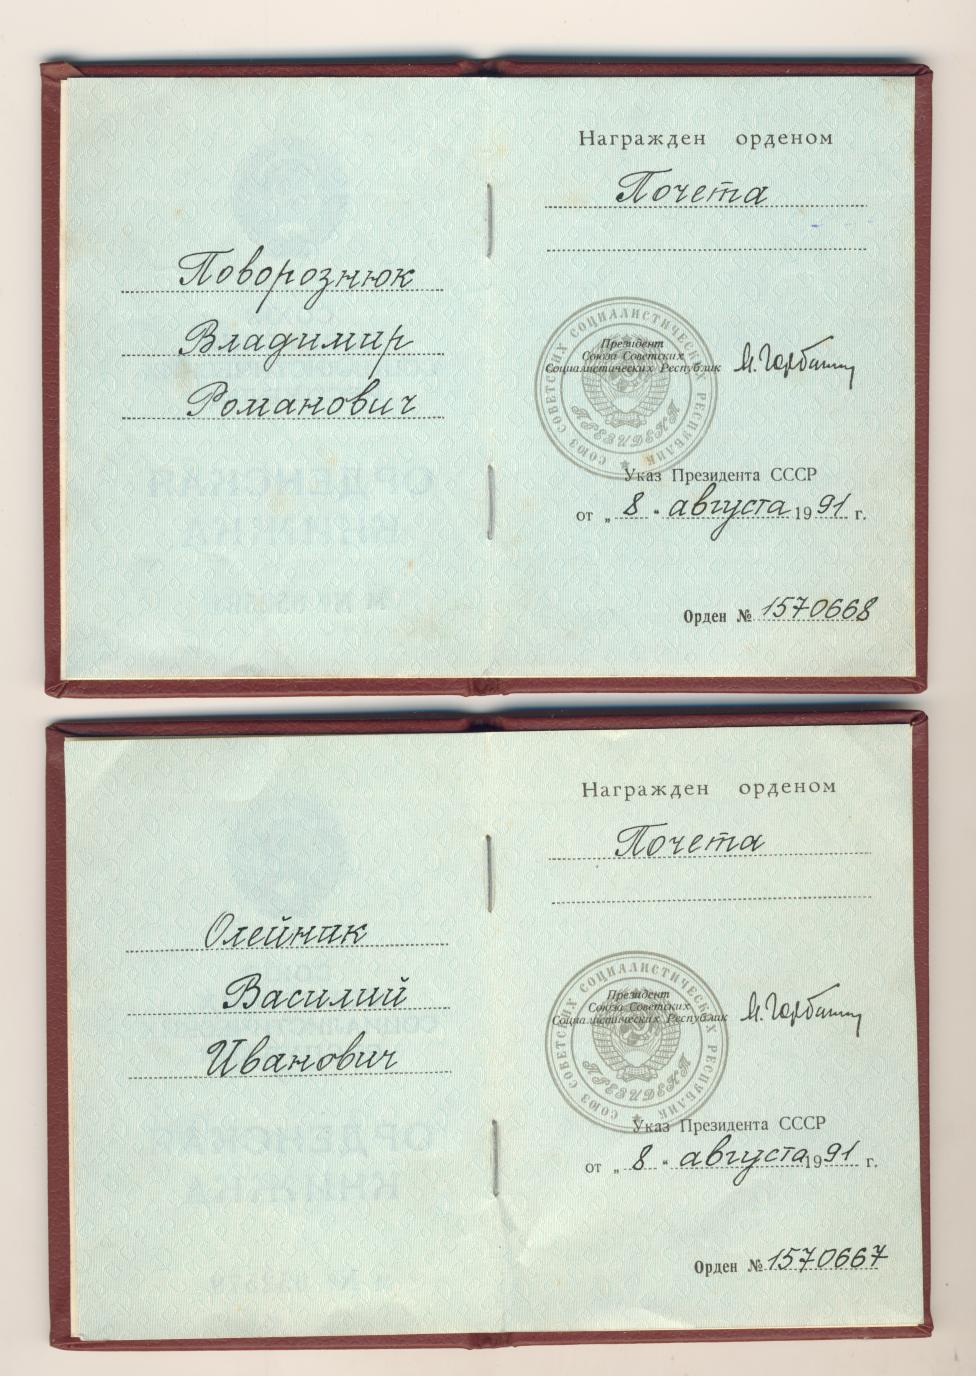 Поворознюк
Владимир
Романович
Награжден орденом
Почета
СОЮЗ СОВЕТСКИХ СОЦИАЛИСТИЧЕСКИХ РЕСПУБЛИК
Президент
Союза Советских
Социалистических Республик
М. Горбачев
ПРЕЗИДЕНТ
Указ Президента СССР
от „8“ августа 1991 г.
Орден № 1570668
Олейник
Василий
Иванович
Награжден орденом
Почета
СОЮЗ СОВЕТСКИХ СОЦИАЛИСТИЧЕСКИХ РЕСПУБЛИК
Президент
Союза Советских
Социалистических Республик
М. Горбачев
ПРЕЗИДЕНТ
Указ Президента СССР
от „8“ августа 1991 г.
Орден № 1570667